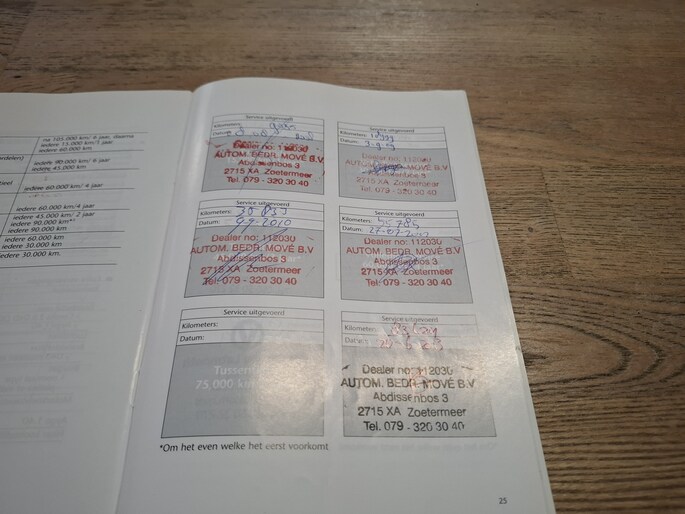 na 105.000 km/ 6 jaar, daarna
iedere 15.000 km/1 jaar
iedere 60.000 km
iedere 90.000 km/ 6 jaar
iedere 45.000 km
iedere 60.000 km/ 4 jaar
iedere 60.000 km/4 jaar
iedere 45.000 km/ 2 jaar
iedere 90.000 km*¹
iedere 90.000 km
iedere 60.000 km
iedere 30.000 km
iedere 30.000 km.
Service uitgevoerd
Kilometers:
Datum:
Dealer no: 112030
AUTOM. BEDR. MOVÉ B.V.
Abdissenbos 3
2715 XA Zoetermeer
Tel. 079 - 320 30 40
Service uitgevoerd
Kilometers:
Datum: 9-9-09
Dealer no: 112030
AUTOM. BEDR. MOVÉ B.V
2715 XA Zoetermeer
Tel. 079 - 320 30 40
Service uitgevoerd
Kilometers:
Datum: 9-9-2010
Dealer no: 112030
AUTOM. BEDR. MOVÉ B.V
Abdissenbos 3
2715 XA Zoetermeer
Tel. 079 - 320 30 40
Service uitgevoerd
Kilometers: 55785
Datum:
Dealer no: 112030
AUTOM. BEDR. MOVÉ B.V
Abdissenbos 3
2715 XA Zoetermeer
Tel: 079 - 320 30 40
Service uitgevoerd
Kilometers:
Datum:
Tussen
75.000 km
Service uitgevoerd
Kilometers:
Datum:
Dealer no: 112030
AUTOM. BEDR. MOVÉ B.V.
Abdissenbos 3
2715 XA Zoetermeer
Tel. 079 - 320 30 40
*Om het even welke het eerst voorkomt
25